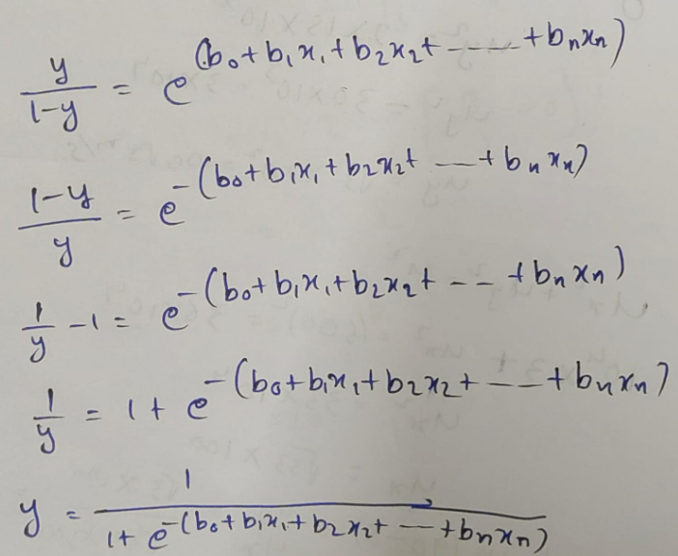 y/(1-y) = e^(b₀+b₁x₁+b₂x₂+ - - - - +bₙxₙ)
(1-y)/y = e^-(b₀+b₁x₁+b₂x₂+ - - +bₙxₙ)
1/y -1 = e^-(b₀+b₁x₁+b₂x₂+ - - +bₙxₙ)
1/y = 1+ e^-(b₀+b₁x₁+b₂x₂+ - - +bₙxₙ)
y = 1/(1+ e^-(b₀+b₁x₁+b₂x₂+ - - +bₙxₙ))